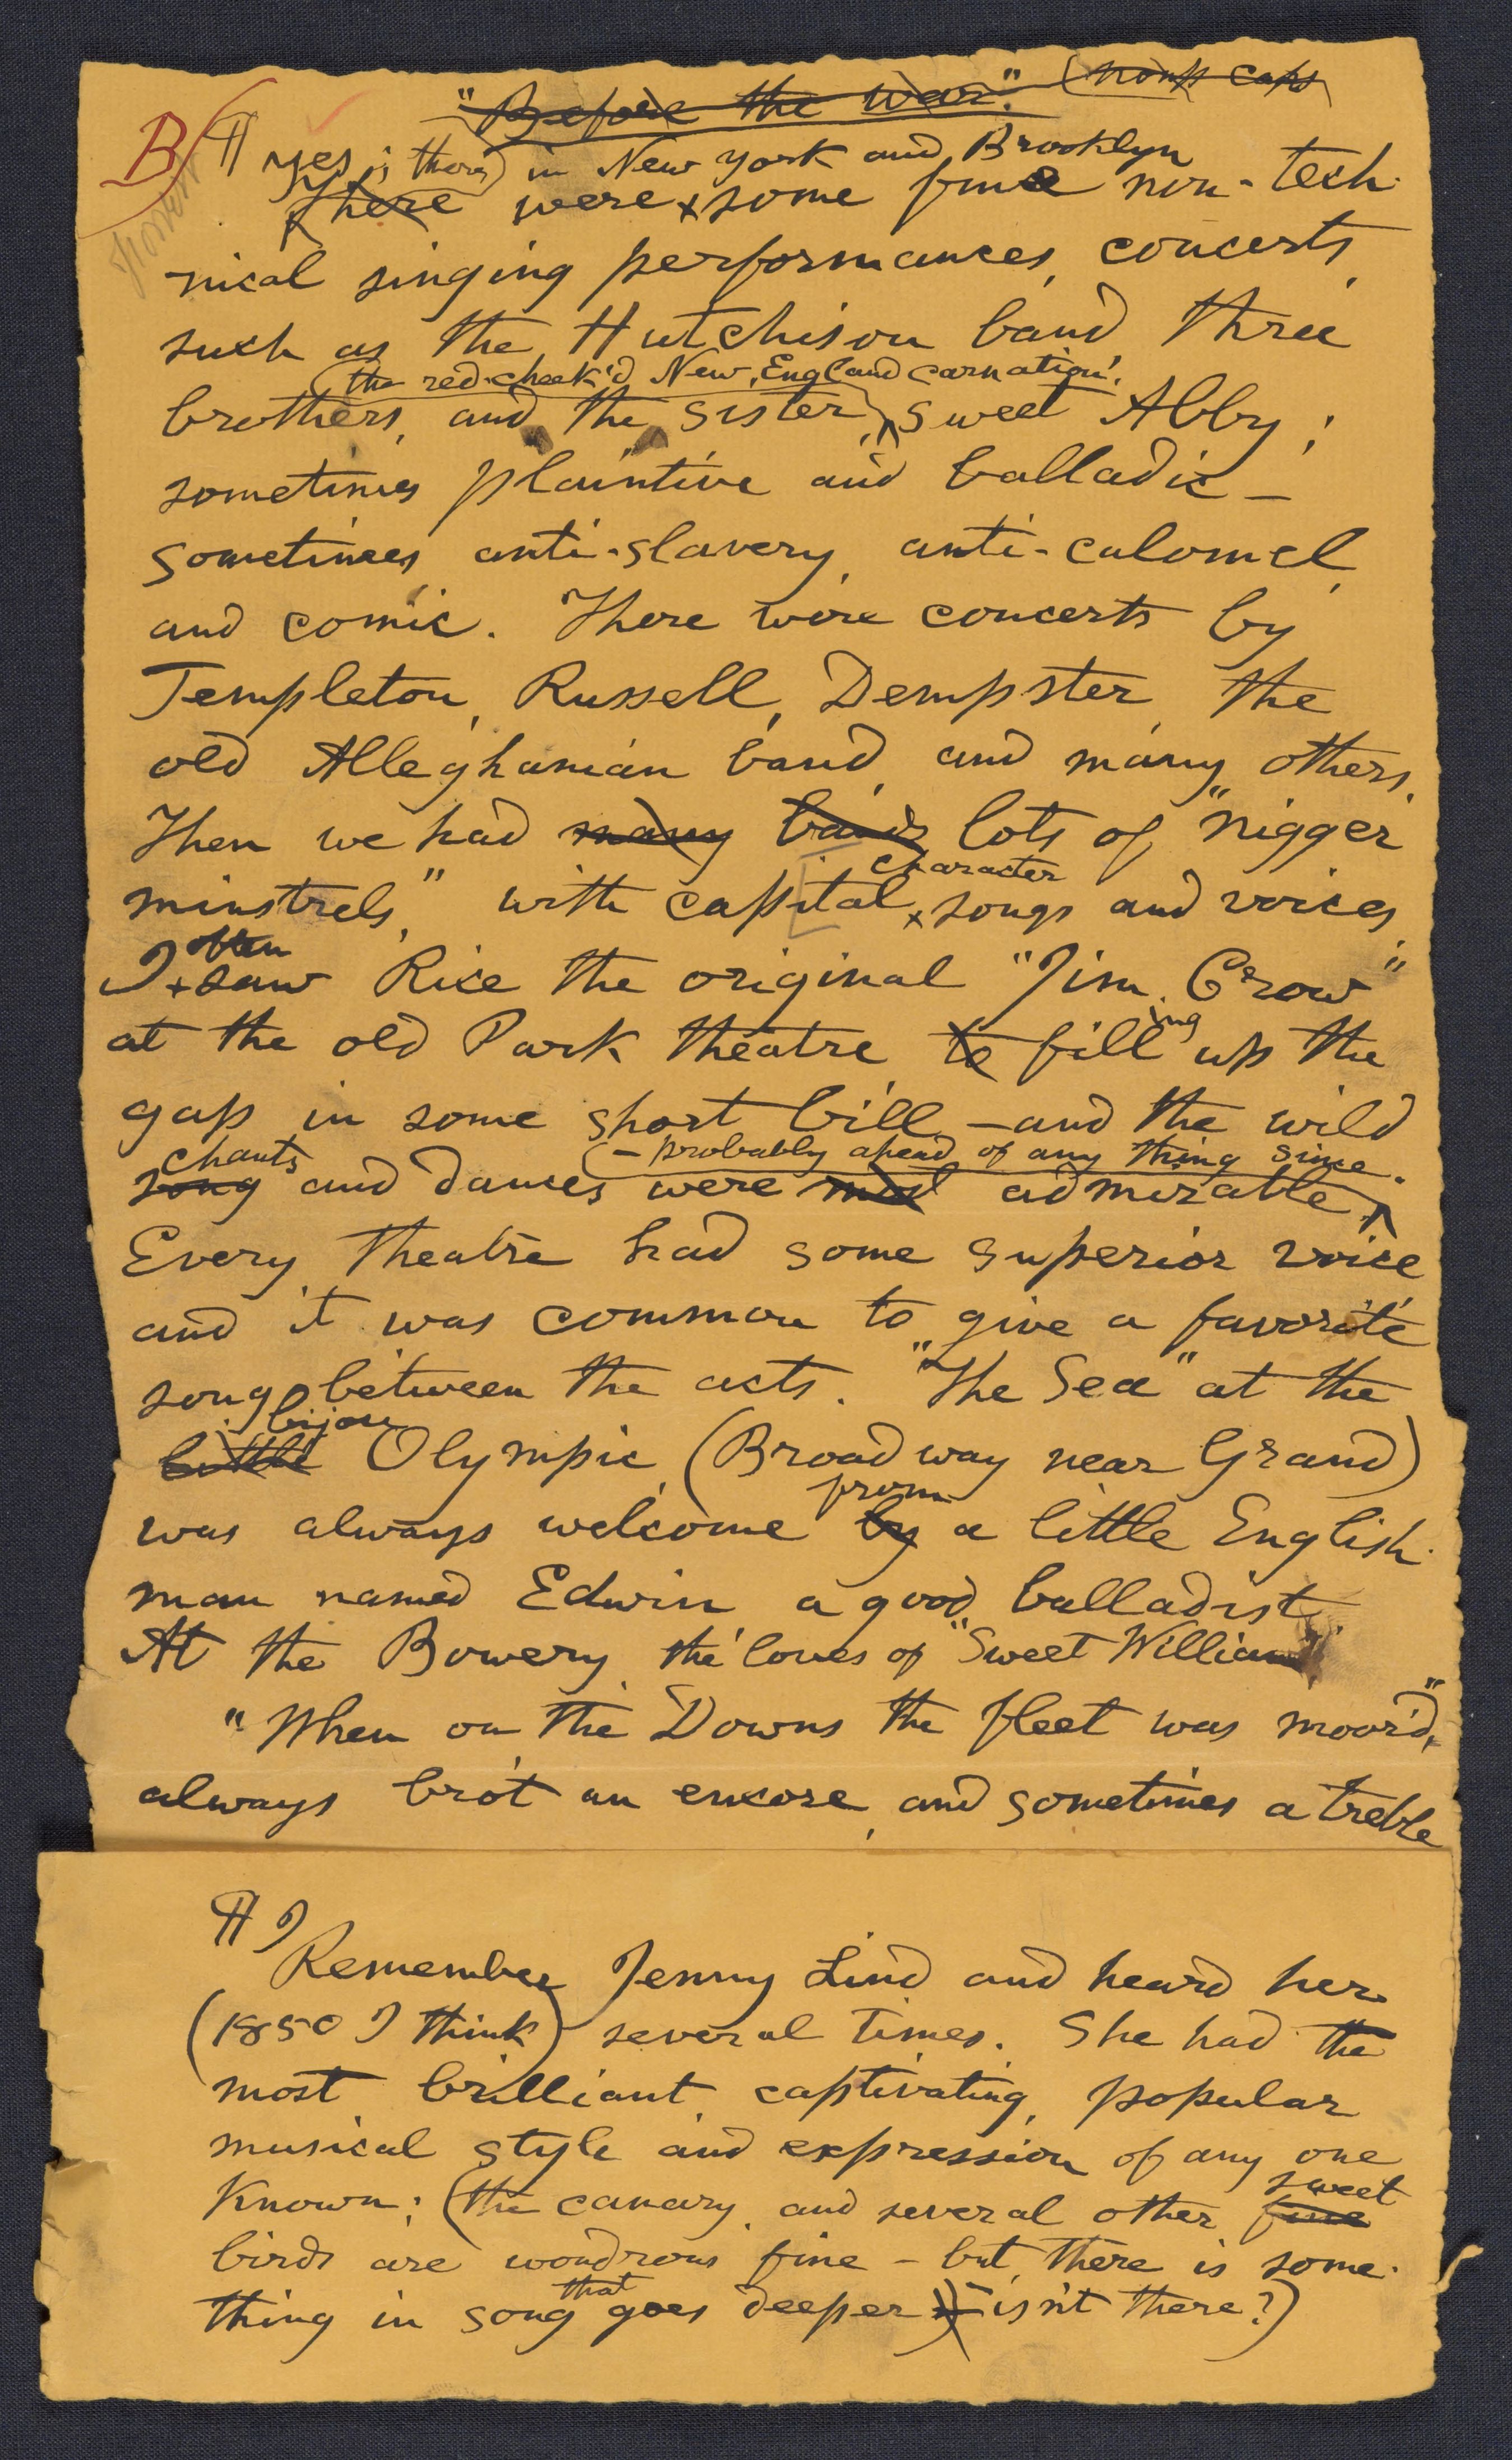 "Before the war." (nonp caps
B ¶ yes; there in New York and Brooklyn
There were some fine non-tech-
nical singing performances, concerts,
such as the Hutchison band three
(the red-cheek'd New England carnation,
brothers, and the sister, sweet Abby;
sometimes plaintive and balladic —
sometimes anti-slavery, anti-calomel,
and comic. There were concerts by
Templeton, Russell, Dempster, the
old Alleghanian band, and many others.
Then we had many bands lots of "nigger
character
minstrels," with capital songs and voices
often
I saw Rice the original "Jim Crow"
at the old Park theatre to filling up the
gap in some short bill — and the wild
chants – probably ahead of any thing since.
song and dances were most admirable
Every theatre had some superior voice
and it was common to give a favorite
song between the acts. "The Sea" at the
bijou
little Olympic, (Broadway near Grand)
from
was always welcome by a little English-
man named Edwin a good balladist
At the Bowery the loves of "Sweet William,"
"When on the Downs the fleet was moor'd,"
always bro't an encore, and sometimes a treble
¶ I
Remember Jenny Lind and heard her
(1850 I think) several times. She had the
most brilliant, captivating, popular
musical style and expression of any one
known; (the canary, and several other sweet
fine
birds are wondrous fine – but there is some-
that
thing in song goes deeper – isn't there?)